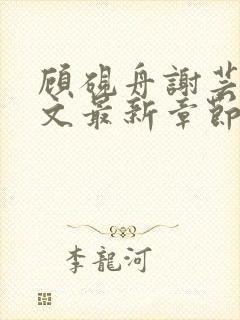 顾硯舟謝芸
文最新章節
李龍河